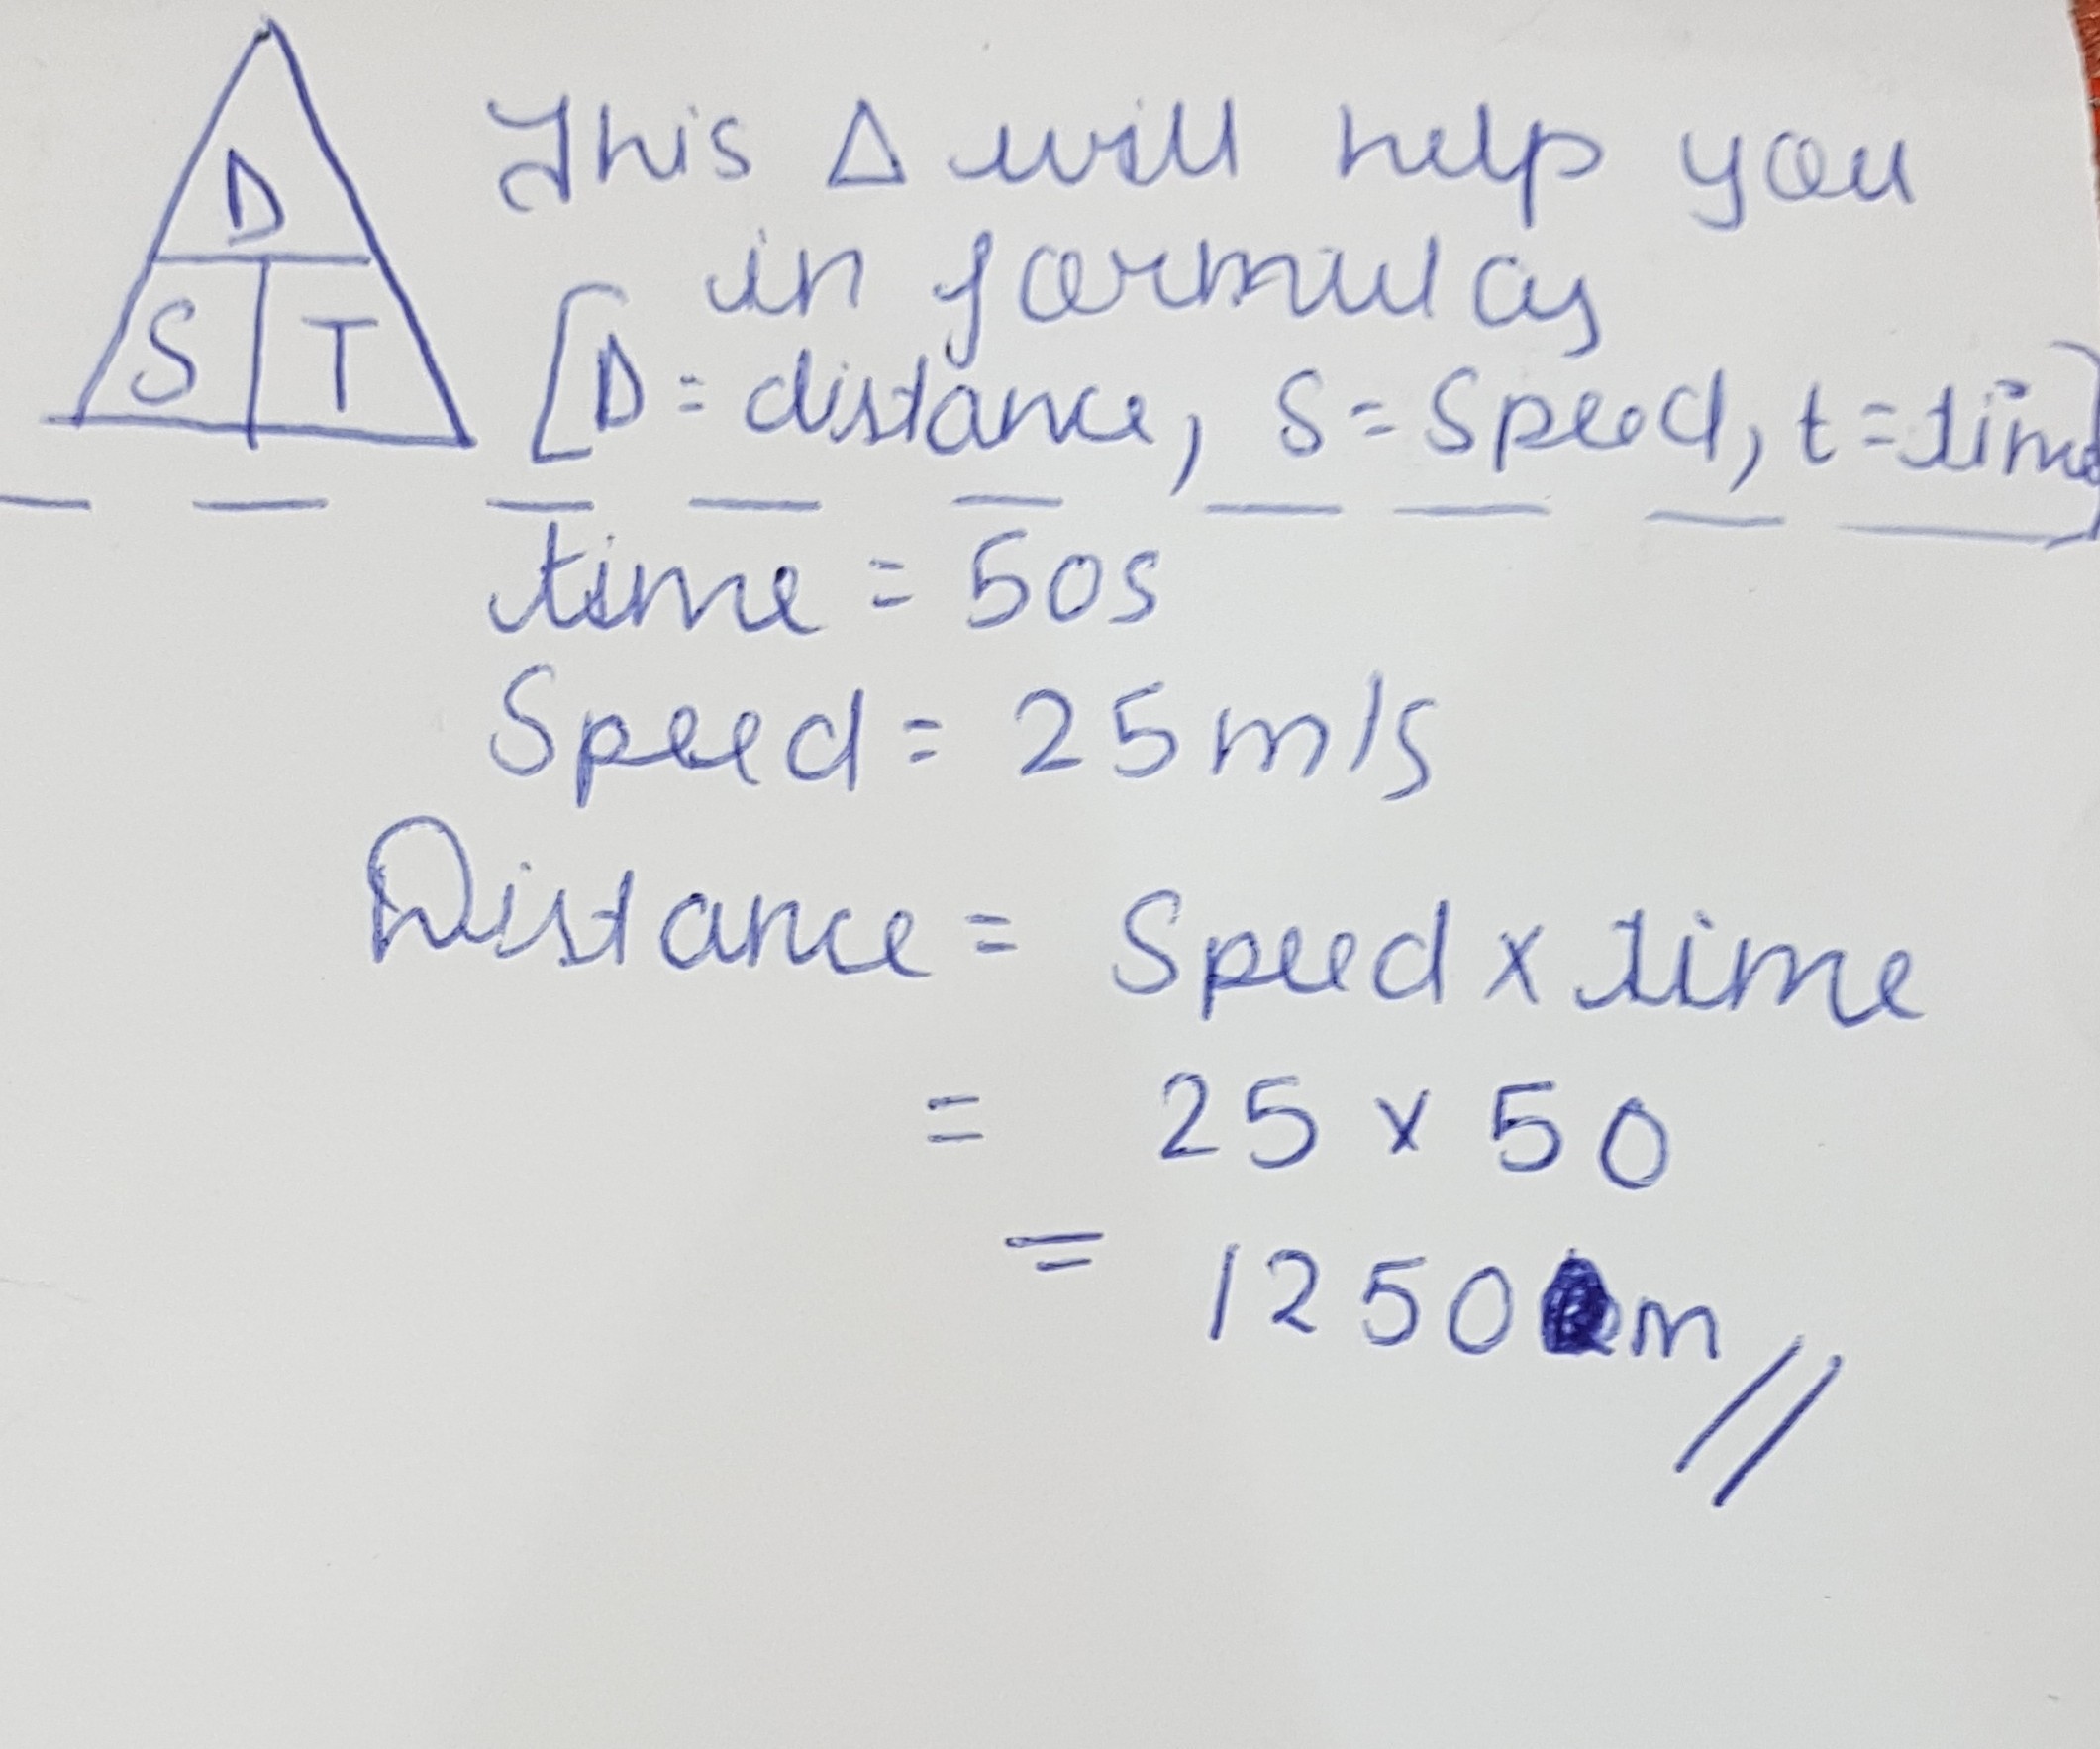 D
S T
This △ will help you
in formulas
[D = distance, S = Speed, t = time]
time = 50s
Speed = 25 m/s
Distance = Speed x time
= 25 x 50
= 1250 m //